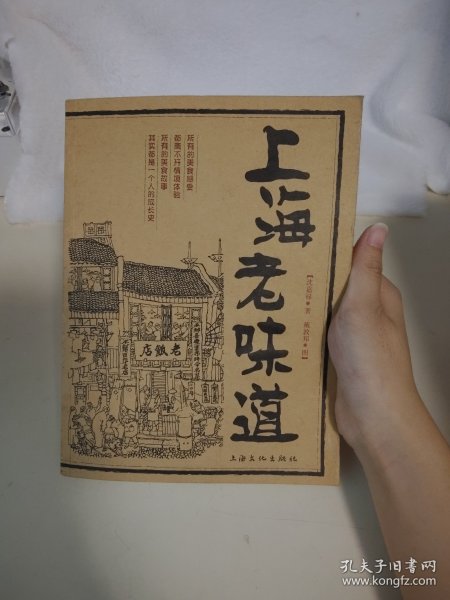 上海老味道
【沈嘉禄◎著 戴敦邦◎图】
所有的美食感受
都离不开情境体验
所有的美食故事
其实都是一个人的成长史
老飯店
上海文化出版社
孔夫子旧书网
www.kongfz.com